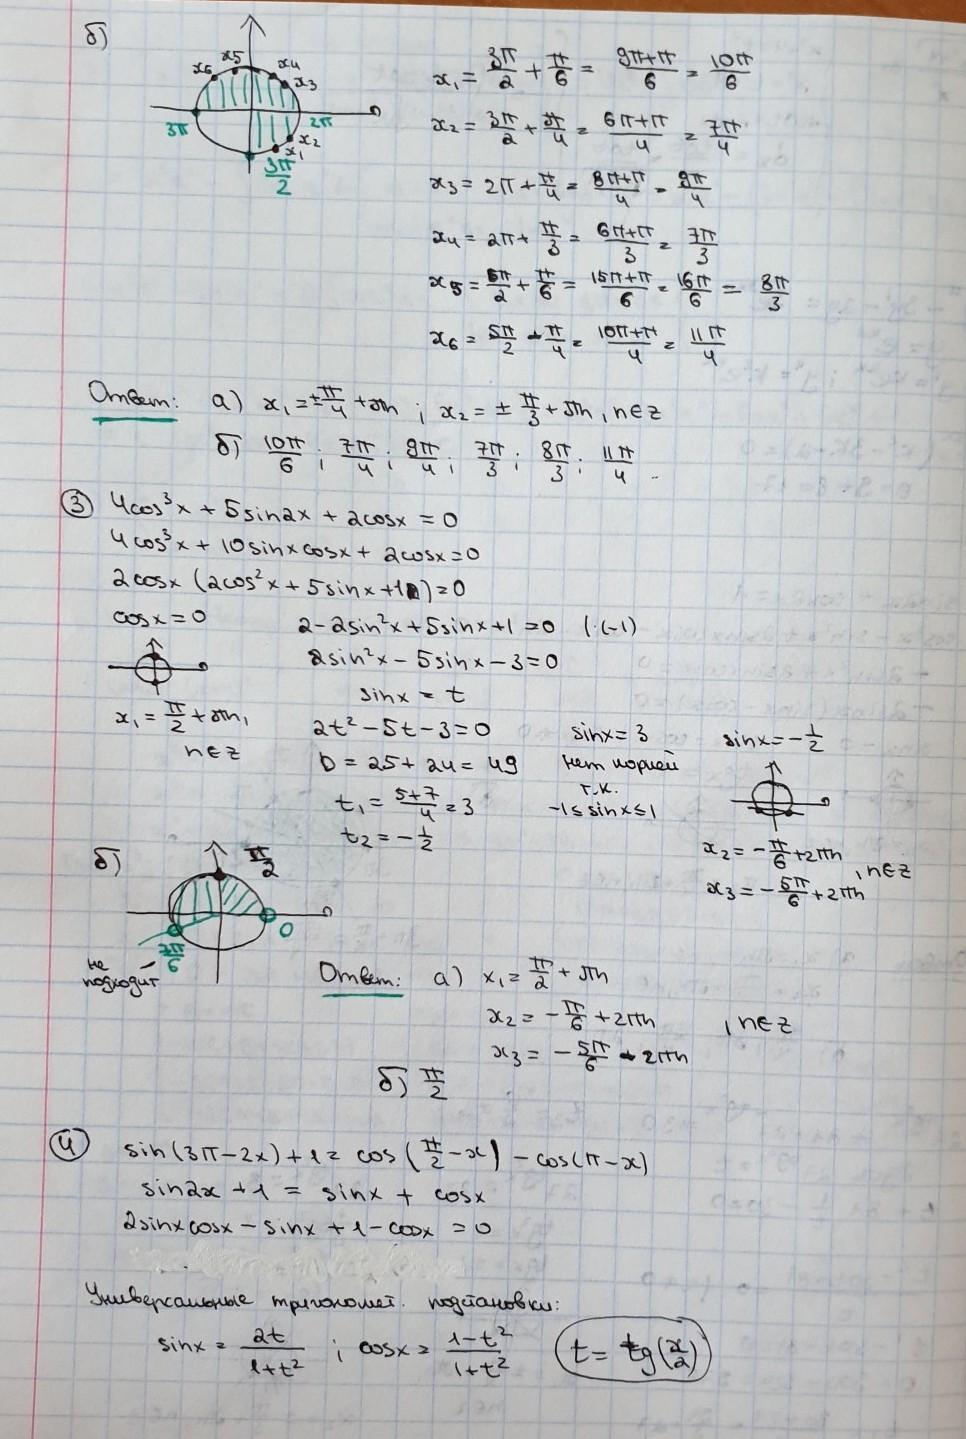 б)
x5
x6
x4
x3
3π
2π
x2
x1
3π/2
x₁ = 3π/2 + π/6 = 9π+π/6 = 10π/6
x₂ = 3π/2 + π/4 = 6π+π/4 = 7π/4
x₃ = 2π + π/4 = 8π+π/4 = 9π/4
x₄ = 2π + π/3 = 6π+π/3 = 7π/3
x₅ = 5π/2 + π/6 = 15π+π/6 = 16π/6 = 8π/3
x₆ = 5π/2 + π/4 = 10π+π/4 = 11π/4
Ответ: а) x₁ = ±π/4 + πn ; x₂ = ± π/3 + πn, n∈z
б) 10π/6 ; 7π/4 ; 9π/4 ; 7π/3 ; 8π/3 ; 11π/4
③ 4cos³x + 5sin2x + 2cosx = 0
4cos³x + 10sinxcosx + 2cosx = 0
2cosx (2cos²x + 5sinx + 1) = 0
cosx = 0
x₁ = π/2 + πn,
n∈z
2 - 2sin²x + 5sinx + 1 = 0 (·(-1)
2sin²x - 5sinx - 3 = 0
sinx = t
2t² - 5t - 3 = 0
D = 25 + 24 = 49
t₁ = 5+7/4 = 3
t₂ = -1/2
sinx = 3
нет корней
т.к.
-1 ≤ sinx ≤ 1
sinx = -1/2
x₂ = -π/6 + 2πn
x₃ = -5π/6 + 2πn
, n∈z
б)
π/2
0
7π/6
не подходит
Ответ: а) x₁ = π/2 + πn
x₂ = -π/6 + 2πn , n∈z
x₃ = -5π/6 + 2πn
б) π/2
④ sin(3π-2x) + 1 = cos(π/2 - x) - cos(π-x)
sin2x + 1 = sinx + cosx
2sinxcosx - sinx + 1 - cosx = 0
Универсальные тригономет. подстановки:
sinx = 2t/1+t² ; cosx = 1-t²/1+t² t = tg(x/2)